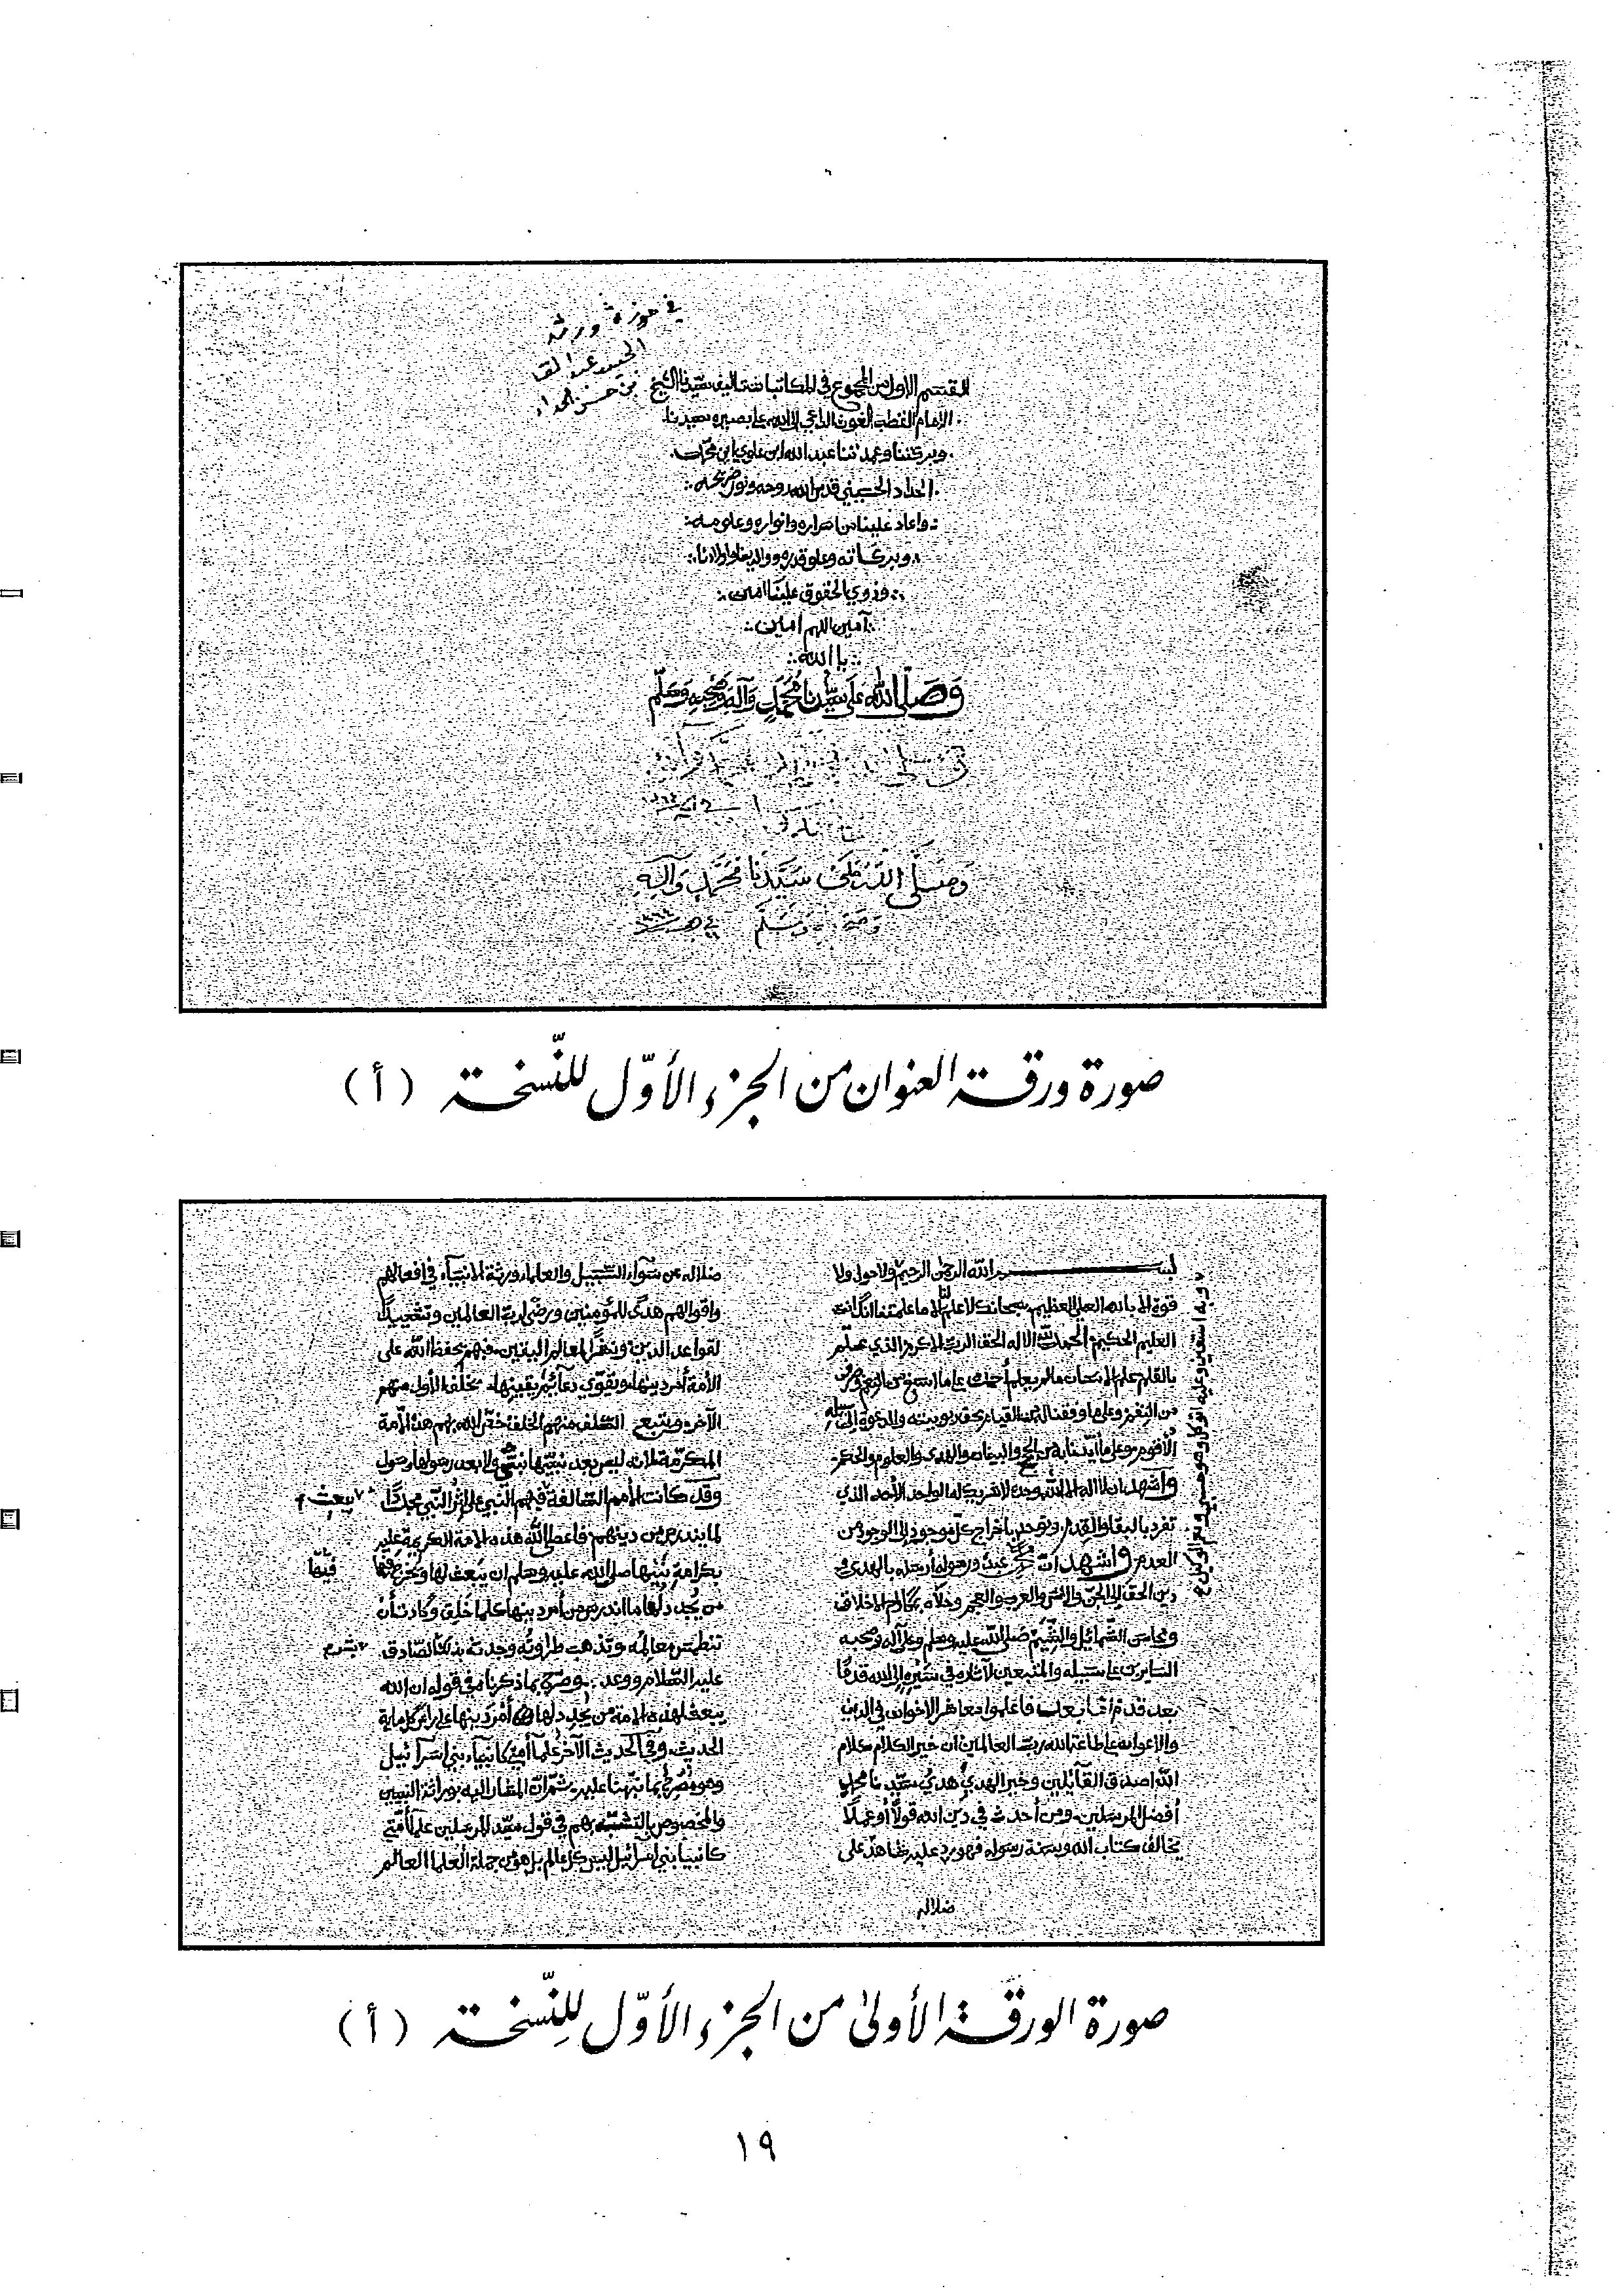 في حوزة ورثة
الحبيب عبد القا
بن حسن الحداد
القسم الاول من المجموع في المكاتبات تاليف سيدنا الشيخ
الامام القطب الغوث الداعي الى الله على بصيرة سيدنا
وبركتنا وعمدتنا عبد الله ابن علوي ابن محمد
الحداد الحسيني قدس الله روحه ونور ضريحه
واعاد علينا من اسراره وانواره وعلومه
وبركاته وعلو قدره ووالدينا واولادنا
وذوي الحقوق علينا امين
آمين اللهم امين
يا الله
وَصَلّى الله عَلى سَيِّدنا مُحَمَّدٍ وَآلِهِ وَصَحْبِهِ وَسَلَّم
وَصَلَّى اللهُ عَلَىٰ سَيِّدِنَا مُحَمَّدٍ وَآلِهِ
وَصَحْبِهِ وَسَلَّم في
صورة ورقة العنوان من الجزء الأوّل للنّسخة (أ)
بسم الله الرحمن الرحيم ولا حول ولا
قوة الا بالله العلي العظيم سبحانك لا علم لنا الا ما علمتنا انك انت
العليم الحكيم الحمد لله الاله الحق الرب الاكرم الذي علّم
بالقلم علم الانسان ما لم يعلم أحمده على ما اسبغ من النعم
من النقم وعلى ما وفقنا له من القيام بحق ربوبيته والدعوة إلى سبيله
الأقوم وعلى ما أيدنا به من الحجج والبصائر والهدى والعلوم والحكم
واشهد ان لا اله الا الله وحده لا شريك له الواحد الأحد الذي
تفرد بالبقاء والقدم وتوحد باخراج كل موجود إلى الوجود من
العدم واشهد انّ محمدا عبده ورسوله أرسله بالهدى و
دين الحق إلى الجن والانس والعرب والعجم وحلّاه بمكارم الاخلاق
ومحاسن الشمائل والشيم صلى الله عليه وسلم وعلى آله وصحبه
السايرين على سبيله والمتبعين لآثاره في سيره إلى الله قدمًا
بعد قدم امّا بعد فاعلموا معاشر الاخوان في الدين
والاعوان على طاعة الله رب العالمين أن خير الكلام كلام
الله اصدق القآئلين وخير الهدي هدي سيّدنا محمد
أفضل المرسلين ومن أحدث في دين الله قولًا أو عملًا
يخالف كتاب الله وسنة رسوله فهو رد عليه شاهد على
ضلاله
وبه استعين وعليه اتوكل وهو حسبي ونعم الوكيل
ضلاله عن سوآء السبيل والعلماء ورثة الانبيآء في افعالهم
واقوالهم هدى للمؤمنين ورضى لرب العالمين
لقواعد الدين لمعالم اليقين فبهم يحفظ الله على
الأمة أمر دينها ويقوّي دعآئم يقينها يخلف الأول منهم
الآخر ويتبع السّلف منهم الخلف خصّ الله بهم هذه الأمة
المكرّمة لانه ليس بعد نبيّها نبي ولا بعد رسولها رسول
وقد كانت الأمم السّالفة فيهم النبي على إثر النّبي مجدّدًا
يبعث
لما يندرس من دينهم فاعطى الله هذه الامة الكريمة عليه
بكرامة نبيّها صلى الله عليه وسلم ان يبعث لها ويخرج فيها
فيها
من يجدد لها ما اندرس من أمر دينها كلما خلق وكادت أن
تنطمس معالمه وتذهب طراوته وجدته بذلك الصادق
عليه السّلام ووعد وصرح بما ذكرنا في قوله ان الله
يبعث لهذه الامة من يجدد لها أمر دينها على رأس كل ماية
الحديث وفي الحديث الآخر علمآء أمتي كانبيآء بني اسرآئيل
وهو مصرح بما نبهنا عليه ثم انّ المشار اليه بوراثة النبيين
والمخصوص بالتشبّه بهم في قول سيّد المرسلين علمآء أمّتي
كانبيآء بني اسرائيل ليس كل عالم بل هو من جملة العلمآء العالم
صورة الورقة الأولىٰ من الجزء الأوّل للنّسخة (أ)
١٩